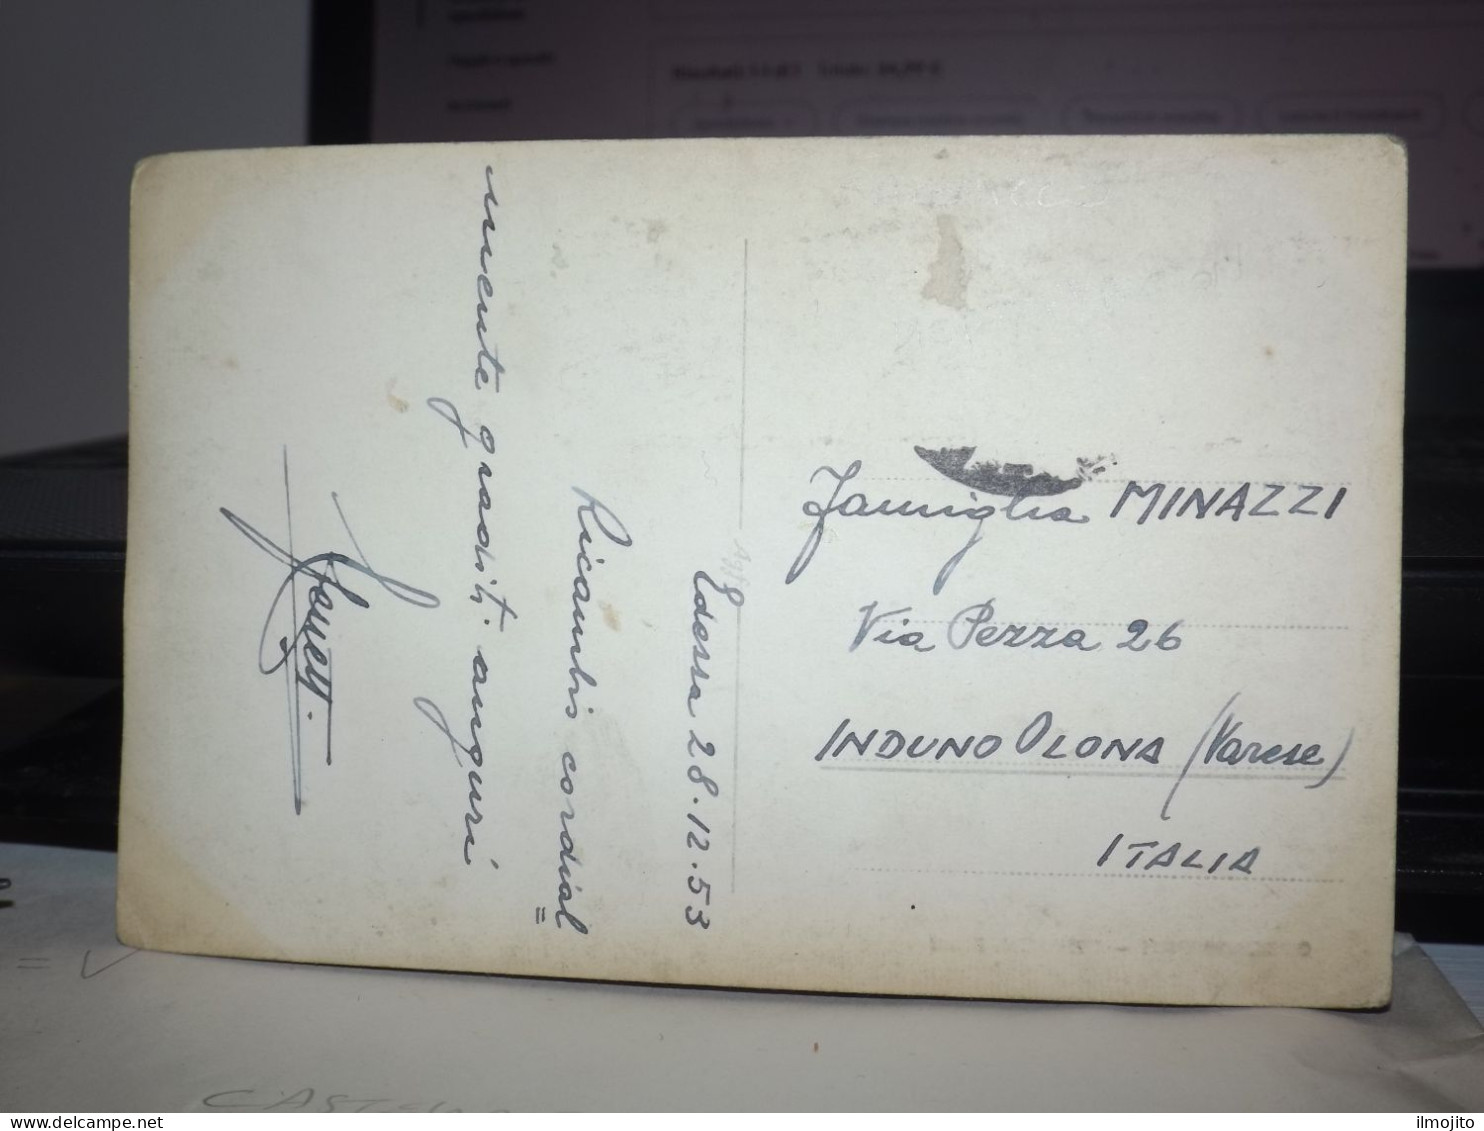 Edessa 28.12.53
Ricambio cordial=
mente graditi auguri
Famiglia MINAZZI
Via Pezza 26
INDUNO OLONA (Varese)
ITALIA
delcampe.net
ilmojito